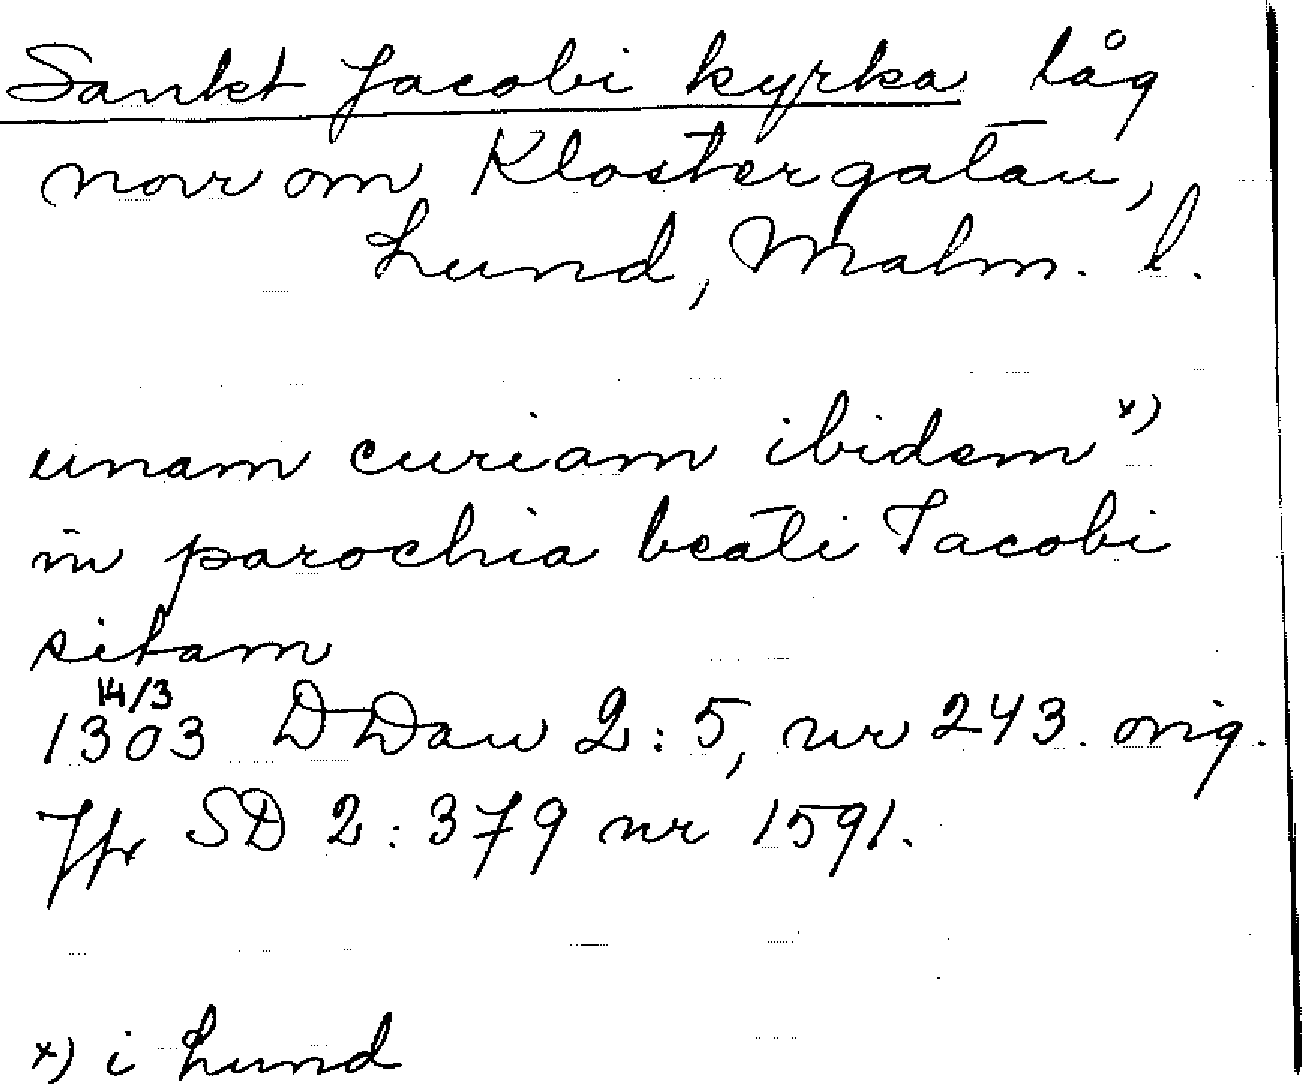 Sankt Jacobi kyrka låg
norr om Klostergatan,
Lund, Malm. l.
unam curiam ibidem x)
in parochia beati Jacobi
sitam
14/3
1303 DDan 2:5, nr 243. orig.
Jfr SD 2:379 nr 1591.
x) i Lund